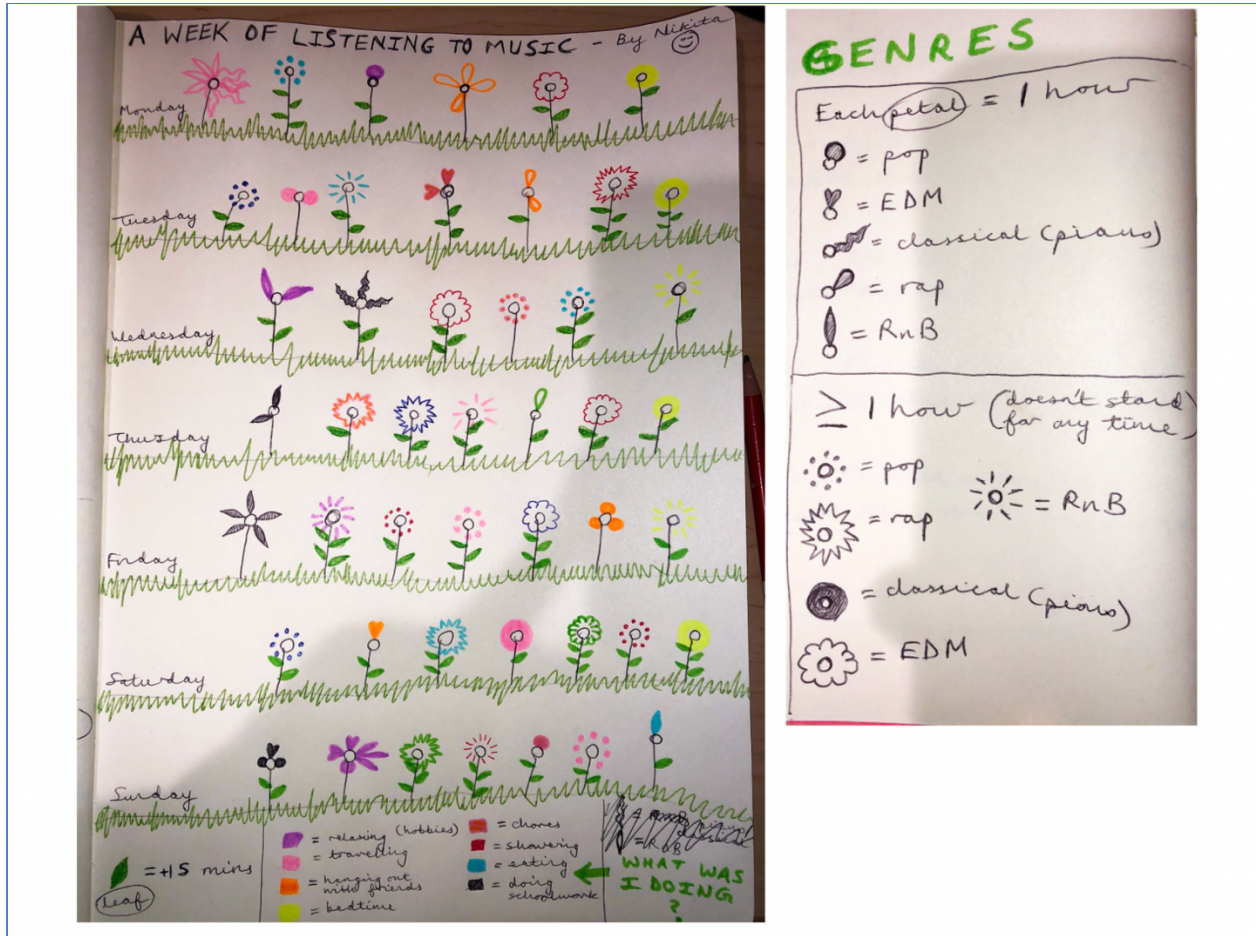 A WEEK OF LISTENING TO MUSIC - By Nikita
Monday
Tuesday
Wednesday
Thursday
Friday
Saturday
Sunday
= +15 mins
leaf
= relaxing (hobbies)
= travelling
= hanging out
with friends
= bedtime
= chores
= showering
= eating
= doing
schoolwork
= RnB
WHAT WAS
I DOING
?
GENRES
Each petal = 1 hour
= pop
= EDM
= classical (piano)
= rap
= RnB
≥ 1 hour (doesn't stand
for any time)
= pop
= RnB
= rap
= classical (piano)
= EDM